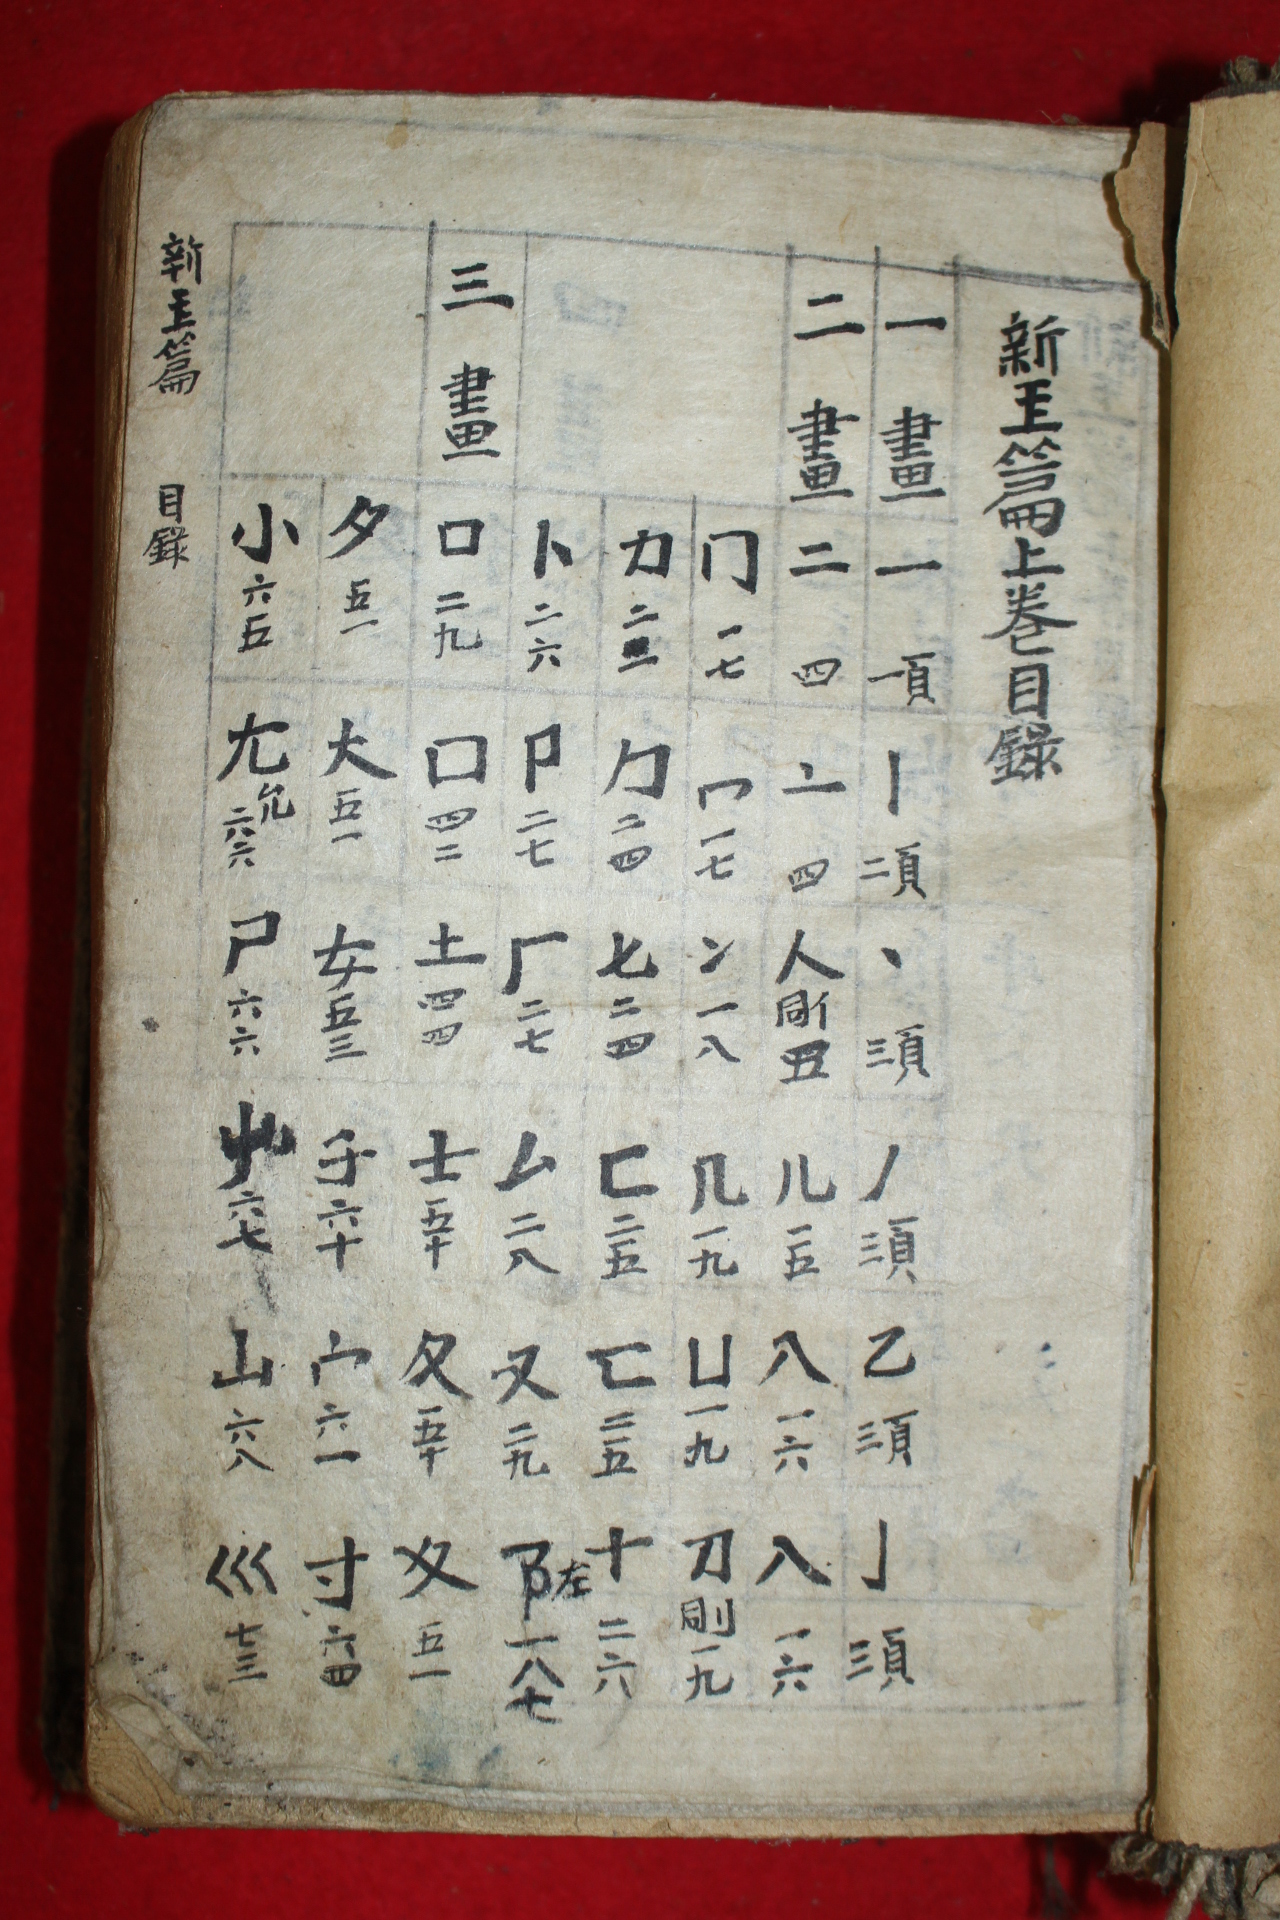 新玉篇上卷目錄
一畫 一 一項 丨 二項 丶 三項 丿 三項 乙 三項 亅 三項
二畫 二 四 亠 四 人 五 儿 一五 入 一六 八 一六
冂 一七 冖 一七 冫 一八 几 一九 凵 一九 刀 一九
力 二三 勹 二四 匕 二四 匚 二五 匸 二五 十 二六
卜 二六 卩 二七 厂 二七 厶 二八 又 二九 阝左 一八七
三畫 口 二九 囗 四二 土 四四 士 五十 夂 五十 夊 五一
夕 五一 大 五一 女 五三 子 六十 宀 六一 寸 六四
小 六五 尢允 六六 尸 六六 屮 六七 山 六八 巛 七三
新玉篇 目錄